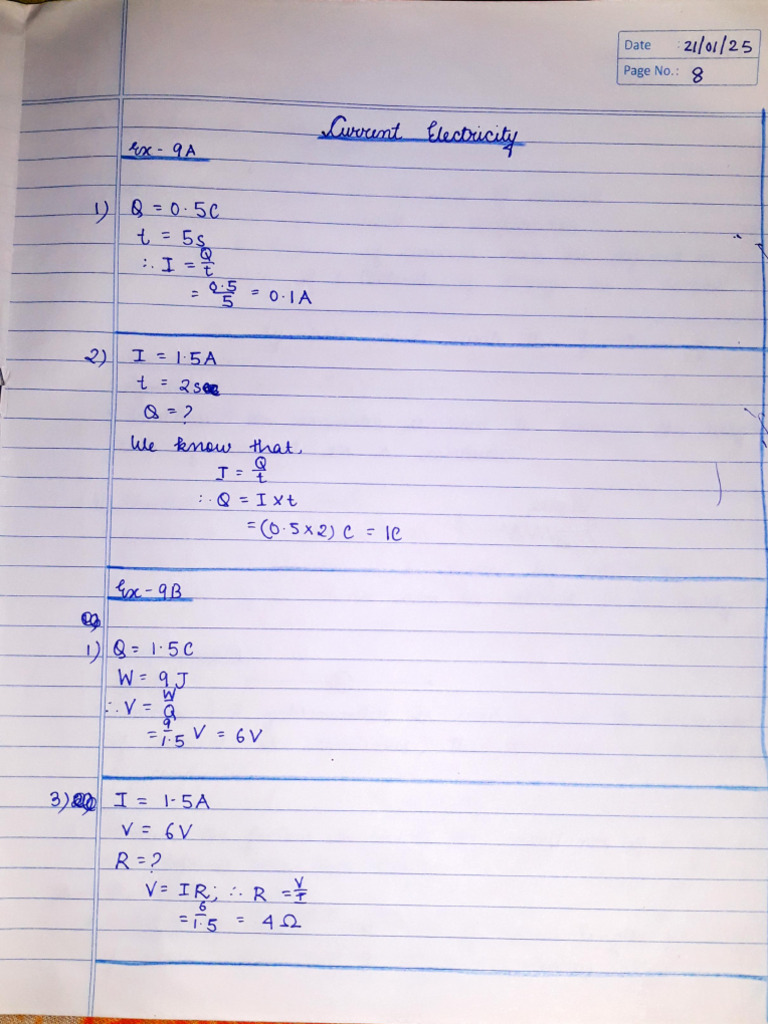 Date : 21/01/25
Page No.: 8
Current Electricity
Ex - 9A
1) Q = 0.5C
t = 5s
∴ I = Q/t
= 0.5/5 = 0.1A
2) I = 1.5A
t = 2s
Q = ?
We know that,
I = Q/t
∴ Q = I × t
= (0.5 × 2) C = 1C
Ex - 9B
1) Q = 1.5C
W = 9J
∴ V = W/Q
= 9/1.5 V = 6V
3) I = 1.5A
V = 6V
R = ?
V = IR; ∴ R = V/I
= 6/1.5 = 4Ω